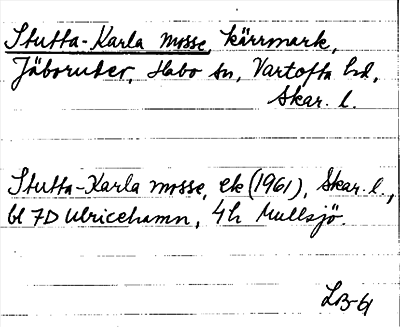 Stutta-Karla mosse, kärrmark,
Jäboruder, Habo sn, Vartofta hd,
Skar. l.
Stutta-Karla mosse, ek (1961), Skar. l.,
bl 7D Ulricehamn, 4h Mullsjö.
LB-61